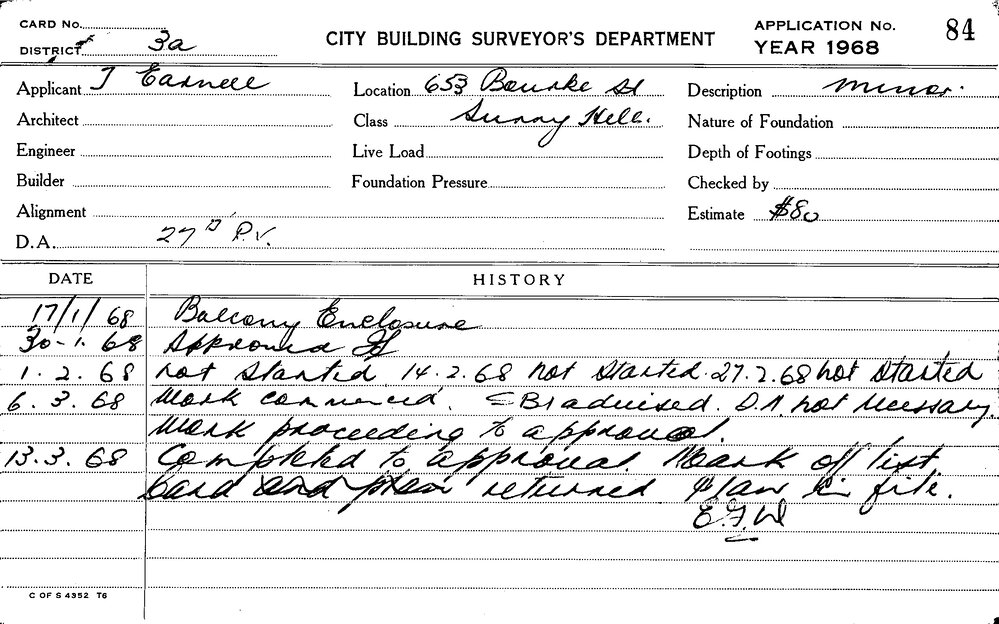 CARD No.
APPLICATION No. 84
DISTRICT 3a
CITY BUILDING SURVEYOR'S DEPARTMENT
YEAR 1968
Applicant J Location 653 Bourke St Description minor.
Architect Class Surry Hills. Nature of Foundation
Engineer Live Load Depth of Footings
Builder Foundation Pressure Checked by
Alignment Estimate $80
D.A. 27 P.V.
DATE HISTORY
17/1/68 Balcony Enclosure
30-1.68 Approved
1.2.68 not started 14.2.68 not started. 27.2.68 not started
6.3.68 Work commenced. advised. D.A. not necessary.
Work proceeding to approval.
13.3.68 Completed to approval. Mark off list.
Card and plan returned plan in file.
E.F.W
C OF S 4352 T6